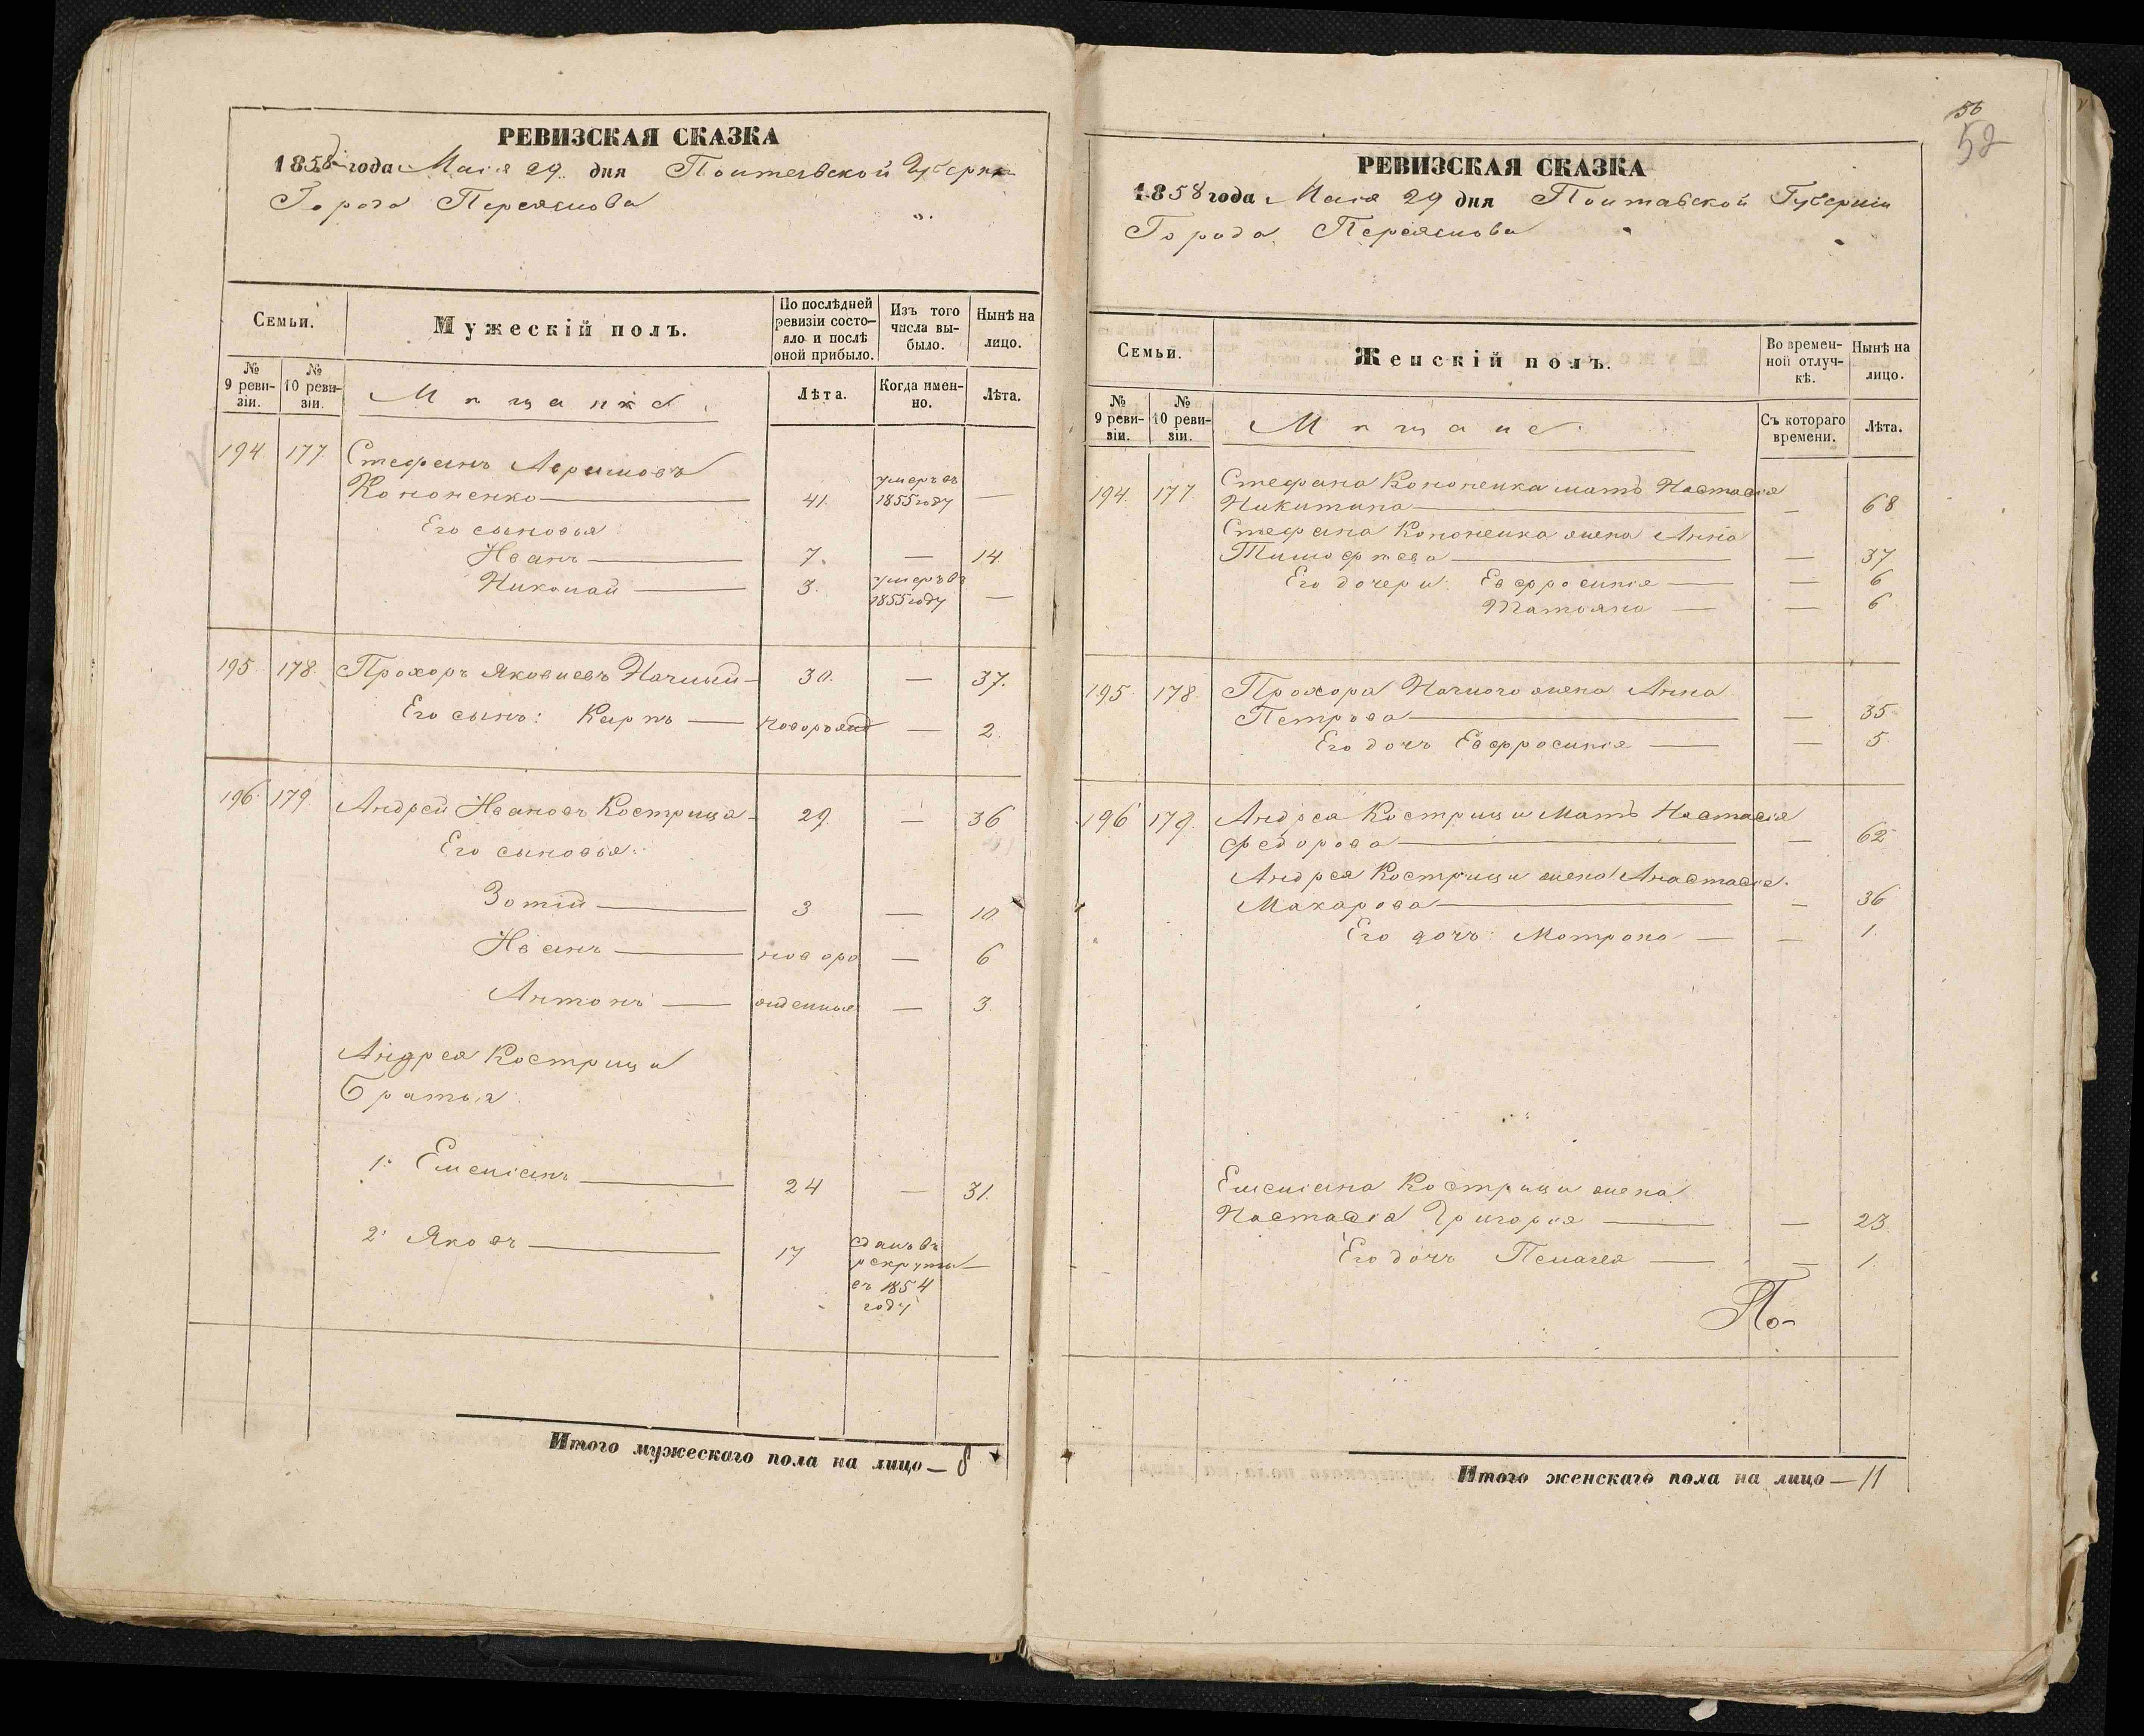 РЕВИЗСКАЯ СКАЗКА
1858 года Маія 29 дня Полтавской Губерніи
Города Переяслова
Семьи.
Мужескій полъ.
По послѣдней ревизіи состо-
яло и послѣ
оной прибыло.
Изъ того
числа вы-
было.
Нынѣ на
лицо.
№
9 реви-
зіи.
№
10 реви-
зіи.
Мѣщане.
Лѣта.
Когда имен-
но.
Лѣта.
194 177 Стефанъ
Кононенко 41. умеръ въ 1855 году —
Его сыновья
Иванъ 7. — 14
Николай 3. умеръ въ 1855 году —
195 178. Прохоръ Яковлевъ 30. — 37.
Его сынъ: Карпъ новорожд — 2.
196. 179. Андрей Ивановъ Кострица 29 — 36
Его сыновья:
Зотій 3 — 10
Иванъ новоро — 6
Антонъ жденные — 3
Андрея Кострици
Братья
1. Емеліанъ 24 — 31.
2. Яковъ 17 сданъ въ рекруты въ 1854 году —
Итого мужескаго пола на лицо — 8
56
52
РЕВИЗСКАЯ СКАЗКА
1858 года Маія 29 дня Полтавской Губерніи
Города Переяслова
Семьи.
Женскій полъ.
Во времен-
ной отлуч-
кѣ.
Нынѣ на
лицо.
№
9 реви-
зіи.
№
10 реви-
зіи.
Мѣщане.
Съ котораго
времени.
Лѣта.
194. 177. Стефана Кононенка мать Настасія
Никитина — 68
Стефана Кононенка жена Анна
Тимофѣева — 37
Его дочери: Евфросинія — 6
Татьяна — 6
195 178. Прохора жена Анна
Петрова — 35
Его дочь Евфросинія — 5
196 179. Андрея Кострици Мать Настасія
Федорова — 62
Андрея Кострици жена Анастасія
Макарова — 36
Его дочь: Мотрона — 1.
Емеліана Кострици жена
Настасія Григорія — 23
Его дочь Пелагея — 1.
По-
Итого женскаго пола на лицо — 11